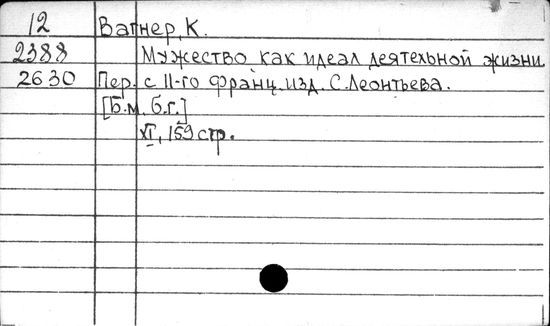 12 Вагнер, К.
2388 Мужество как идеал деятельной жизни.
2630 Пер. с 11-го франц. изд. С. Леонтьева.
[Б.м. б.г.]
XI, 159 стр.